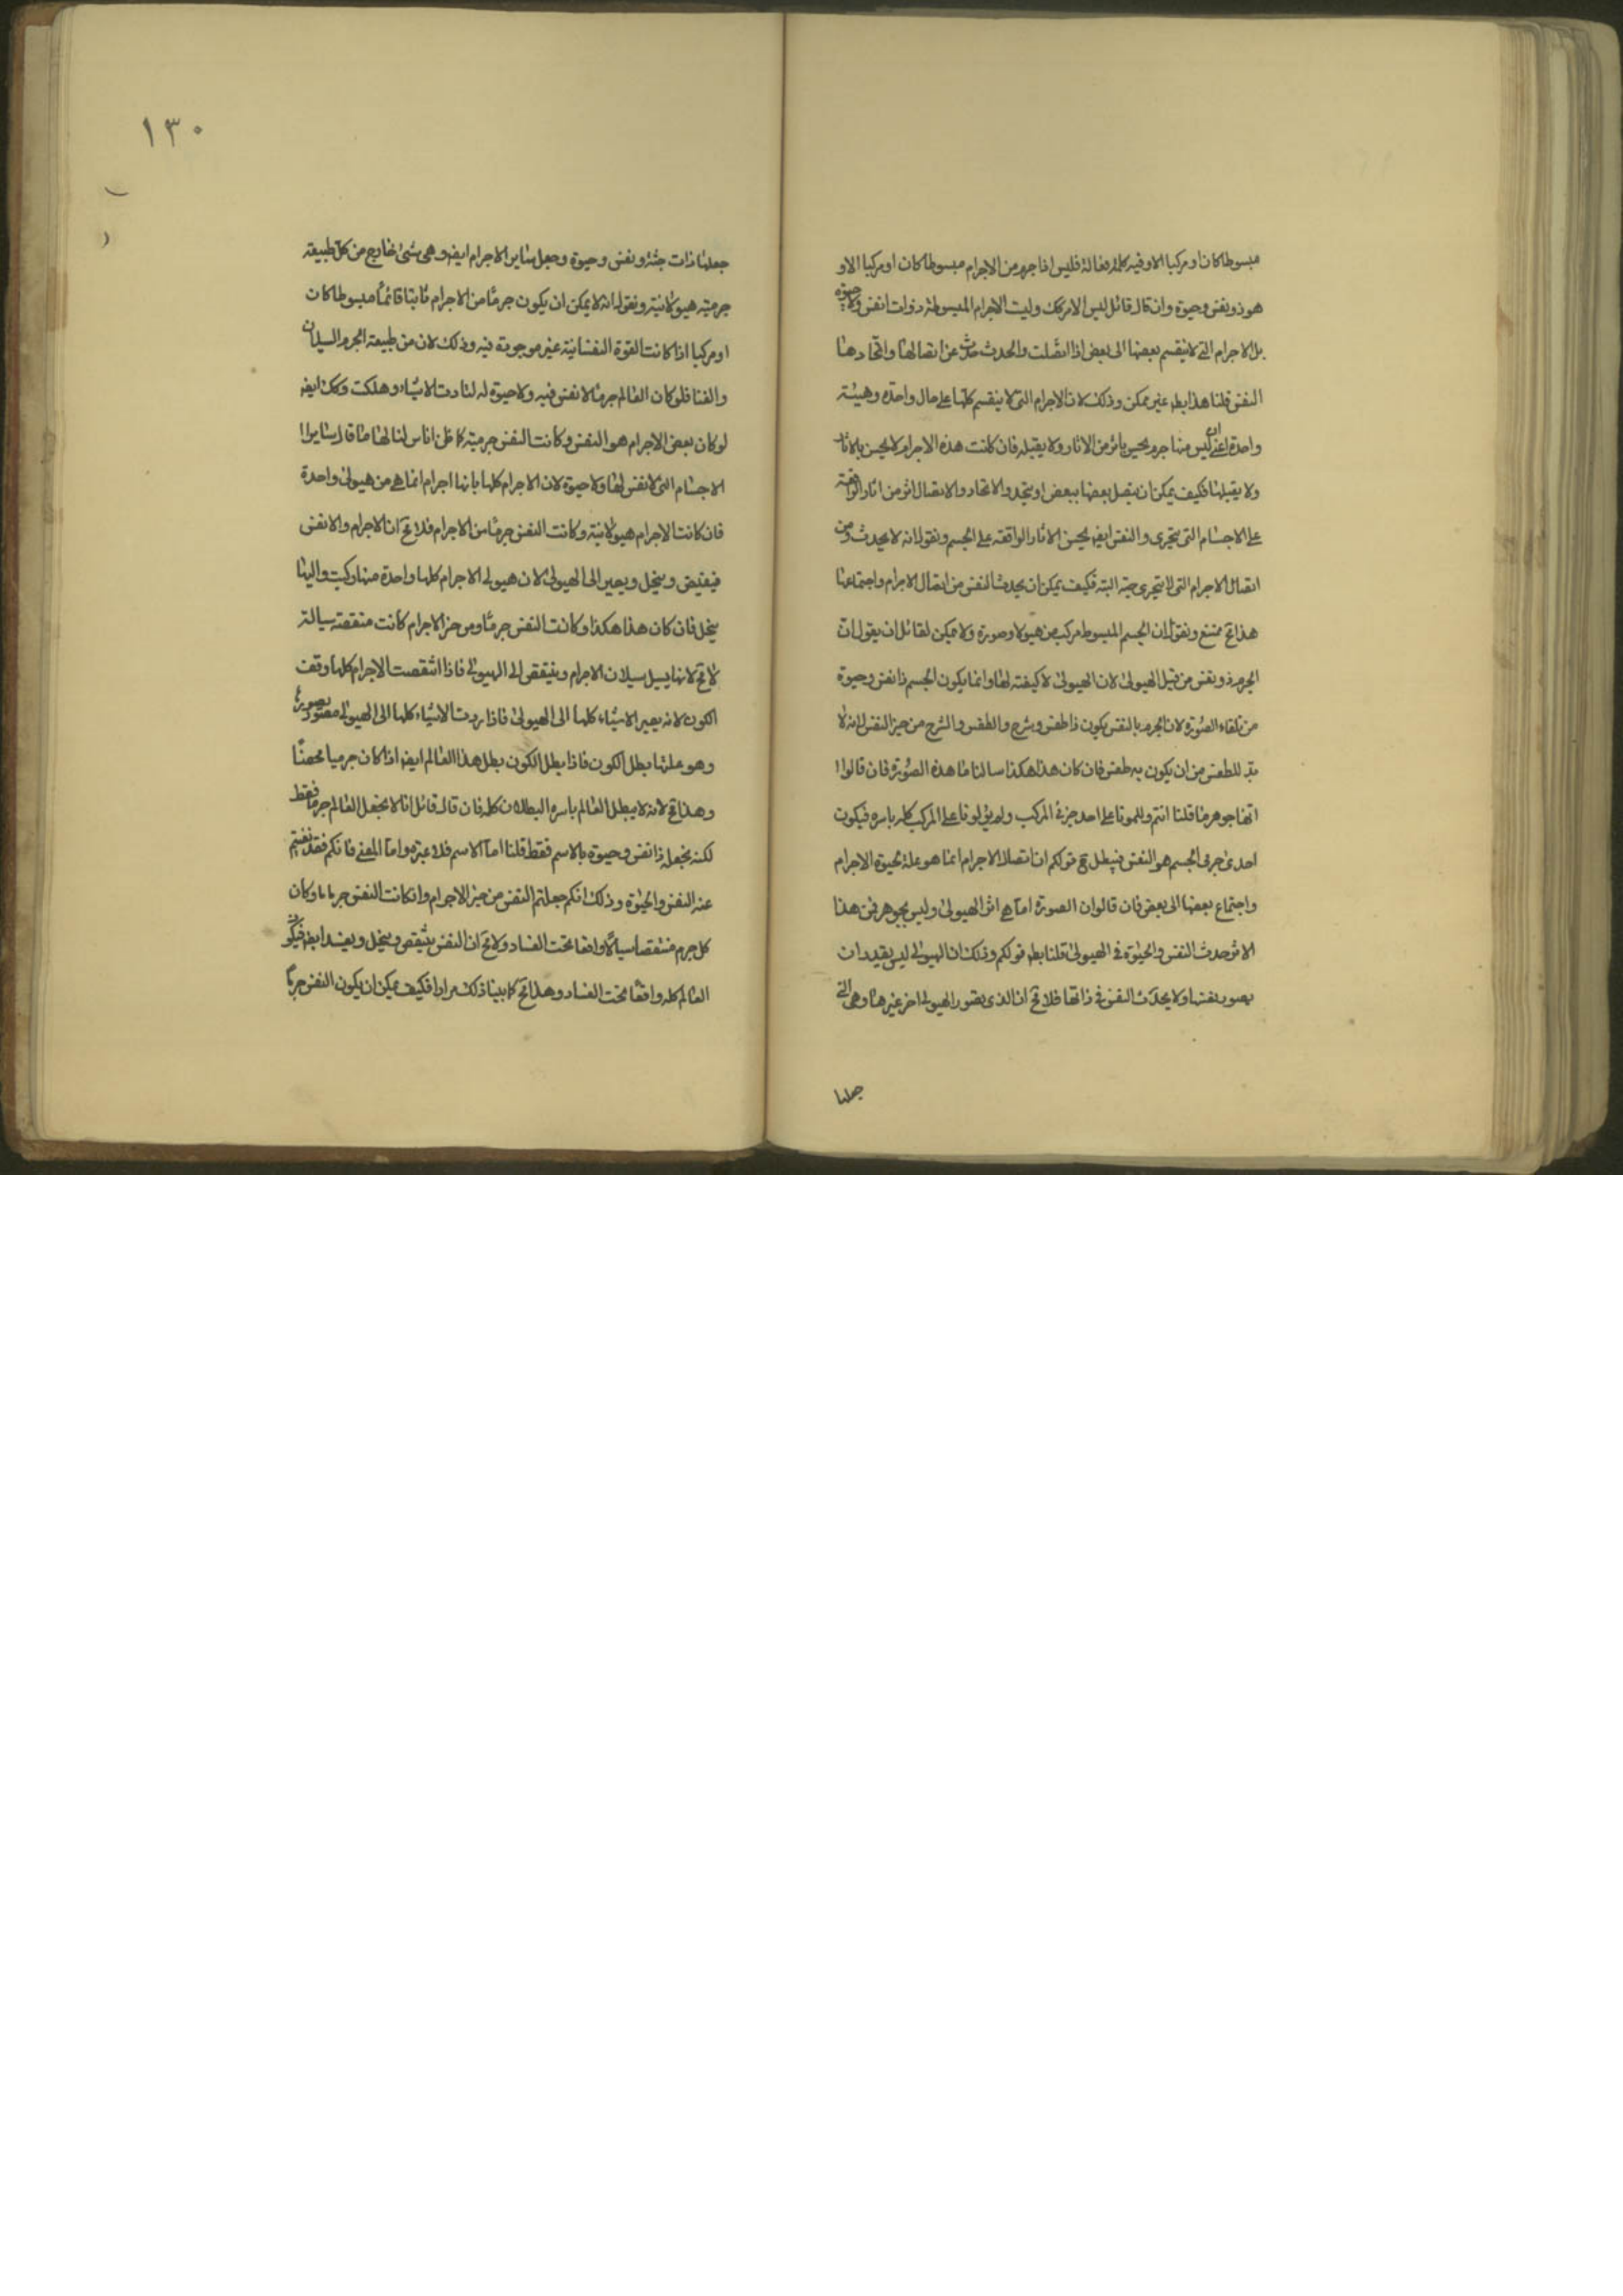 مبسوطا كان او مركبا الا وفيه كلمة فعالة فليس اذا جرم من الاجرام مبسوطا كان او مركبا الا و
هو ذو نفس وحيوة وان قال قائل ليس الامر كك وليت الاجرام المبسوطة ذوات انفس ولا حيوة
بل الاجرام التى لا ينقسم بعضها الى بعض اذا اتصلت والحدث حدث عن اتصالها واتحادها
النفس قلنا هذا بط غير ممكن وذلك لان الاجرام التى لا ينقسم كلها على حال واحدة وهيئة
واحدة اعنى ان ليس منها جرم يحس باثر من الاثار ولا يقبله فان كانت هذه الاجرام لا يحس بالاثار
ولا يقبلها فكيف يمكن ان يتصل بعضها ببعض او يتحد والاتحاد والاتصال اثر من اثار الواقعة
على الاجسام التى يتجزى والنفس ايضا يحس الاثار الواقعة على الجسم ونقول انه لا يحدث من
اتصال الاجرام التى لا يتجزى جثة البتة فكيف يمكن ان يحدث النفس من اتصال الاجرام واجتماعها
هذا مح ممتنع ونقول ان الجسم المبسوط مركب من هيولا وصورة ولا يمكن لقائل ان يقول ان
الجرم ذو نفس من قبل الهيولى لان الهيولى لا كيفية لها وانما يكون الجسم ذا نفس وحيوة
من تلقاء الصورة لان الجرم بالنفس يكون ذا طقس وشرح والطقس والشرح من حيز النفس لانه لا
بد للطقس من ان يكون به طقس فان كان هذا هكذا سالنا ما هذه الصورة فان قالوا ا
انها جوهر ما قلنا انتم دللتمونا على احد جزئى المركب ولم يدلونا على المركب كله باسره فيكون
احدى جزئى الجسم هو النفس فيبطل مح قولكم ان اتصال الاجرام انما هو علة لحيوة الاجرام
واجتماع بعضها الى بعض فان قالوا ان الصورة انما هى اثر الهيولى وليس بجوهر فمن هذا
الاثر حدث النفس والحيوة فى الهيولى قلنا بط قولكم وذلك ان الهيولى ليس يقيد ان
يصور نفسها ولا يحدث النفس فى ذاتها فلا مح ان الذى يصور الهيولى اخر غيرها وهى التى
جعلنا
١٣٠
جعلها ذات جثة ونفس وحيوة وجعل ساير الاجرام ايضا وهى شىء خارج من كل طبيعة
جرمية هيولانية ونقول انه لا يمكن ان يكون جرما من الاجرام ثابتا قائما مبسوطا كان
او مركبا اذا كانت القوة النفسانية غير موجودة فيه وذلك لان من طبيعة الجرم السيلان
والفنا فلو كان العالم جرما لا نفس فيه ولا حيوة له لبادت الاشياء وهلكت وكك ايضا
لو كان بعض الاجرام هو النفس وكانت النفس جرمية كما ظن اناس لنا لها ما قال ساير ا
الاجسام التى لا نفس لها ولا حيوة لان الاجرام كلها بانها اجرام انما هى من هيولى واحدة
فان كانت الاجرام هيولانية وكانت النفس جرما من الاجرام فلا مح ان الاجرام والانفس
فينقض وينحل ويصير الى الهيولى لان هيولى الاجرام كلها واحدة منها ركبت واليها
ينحل فان كان هذا هكذا وكانت النفس جرما ومن حيز الاجرام كانت منقضة سيالة
لا مح لانها يسيل سيلان الاجرام وينقض الى الهيولى فاذا انتقضت الاجرام كلها وقف
الكون لانه يصير الاشياء كلها الى الهيولى فاذا ردت الاشياء كلها الى الهيولى مصور يصورها
وهو علتها بطل الكون فاذا بطل الكون بطل هذا العالم ايضا اذا كان جرميا محضا
وهذا مح لانه لا يبطل العالم باسره البطلان كله فان قال قائل انا لا نجعل العالم جرما فقط
لكنه نجعله ذا نفس وحيوة بالاسم فقط قلنا اما الاسم فلا عبرة واما المعنى فانكم فقد نفيتم
عنه النفس والحيوة وذلك انكم جعلتم النفس من حيز الاجرام وان كانت النفس جرما ما وكان
كل جرم منتقضا سيالا واقعا تحت الفساد ولا مح ان النفس ينتقض وينحل ويفسد ايضا فيكون
العالم كله واقعا تحت الفساد وهذا مح كما بينا ذلك مرارا فكيف يمكن ان يكون النفس جرما